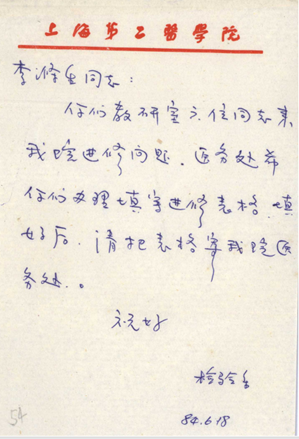 上海第二醫學院
李 生同志：
你们教研室六位同志来
我院进修问题，医务处希
你们办理填写进修表格，填
好后，请把表格寄我院医
务处。
祝好
84.6.18
54